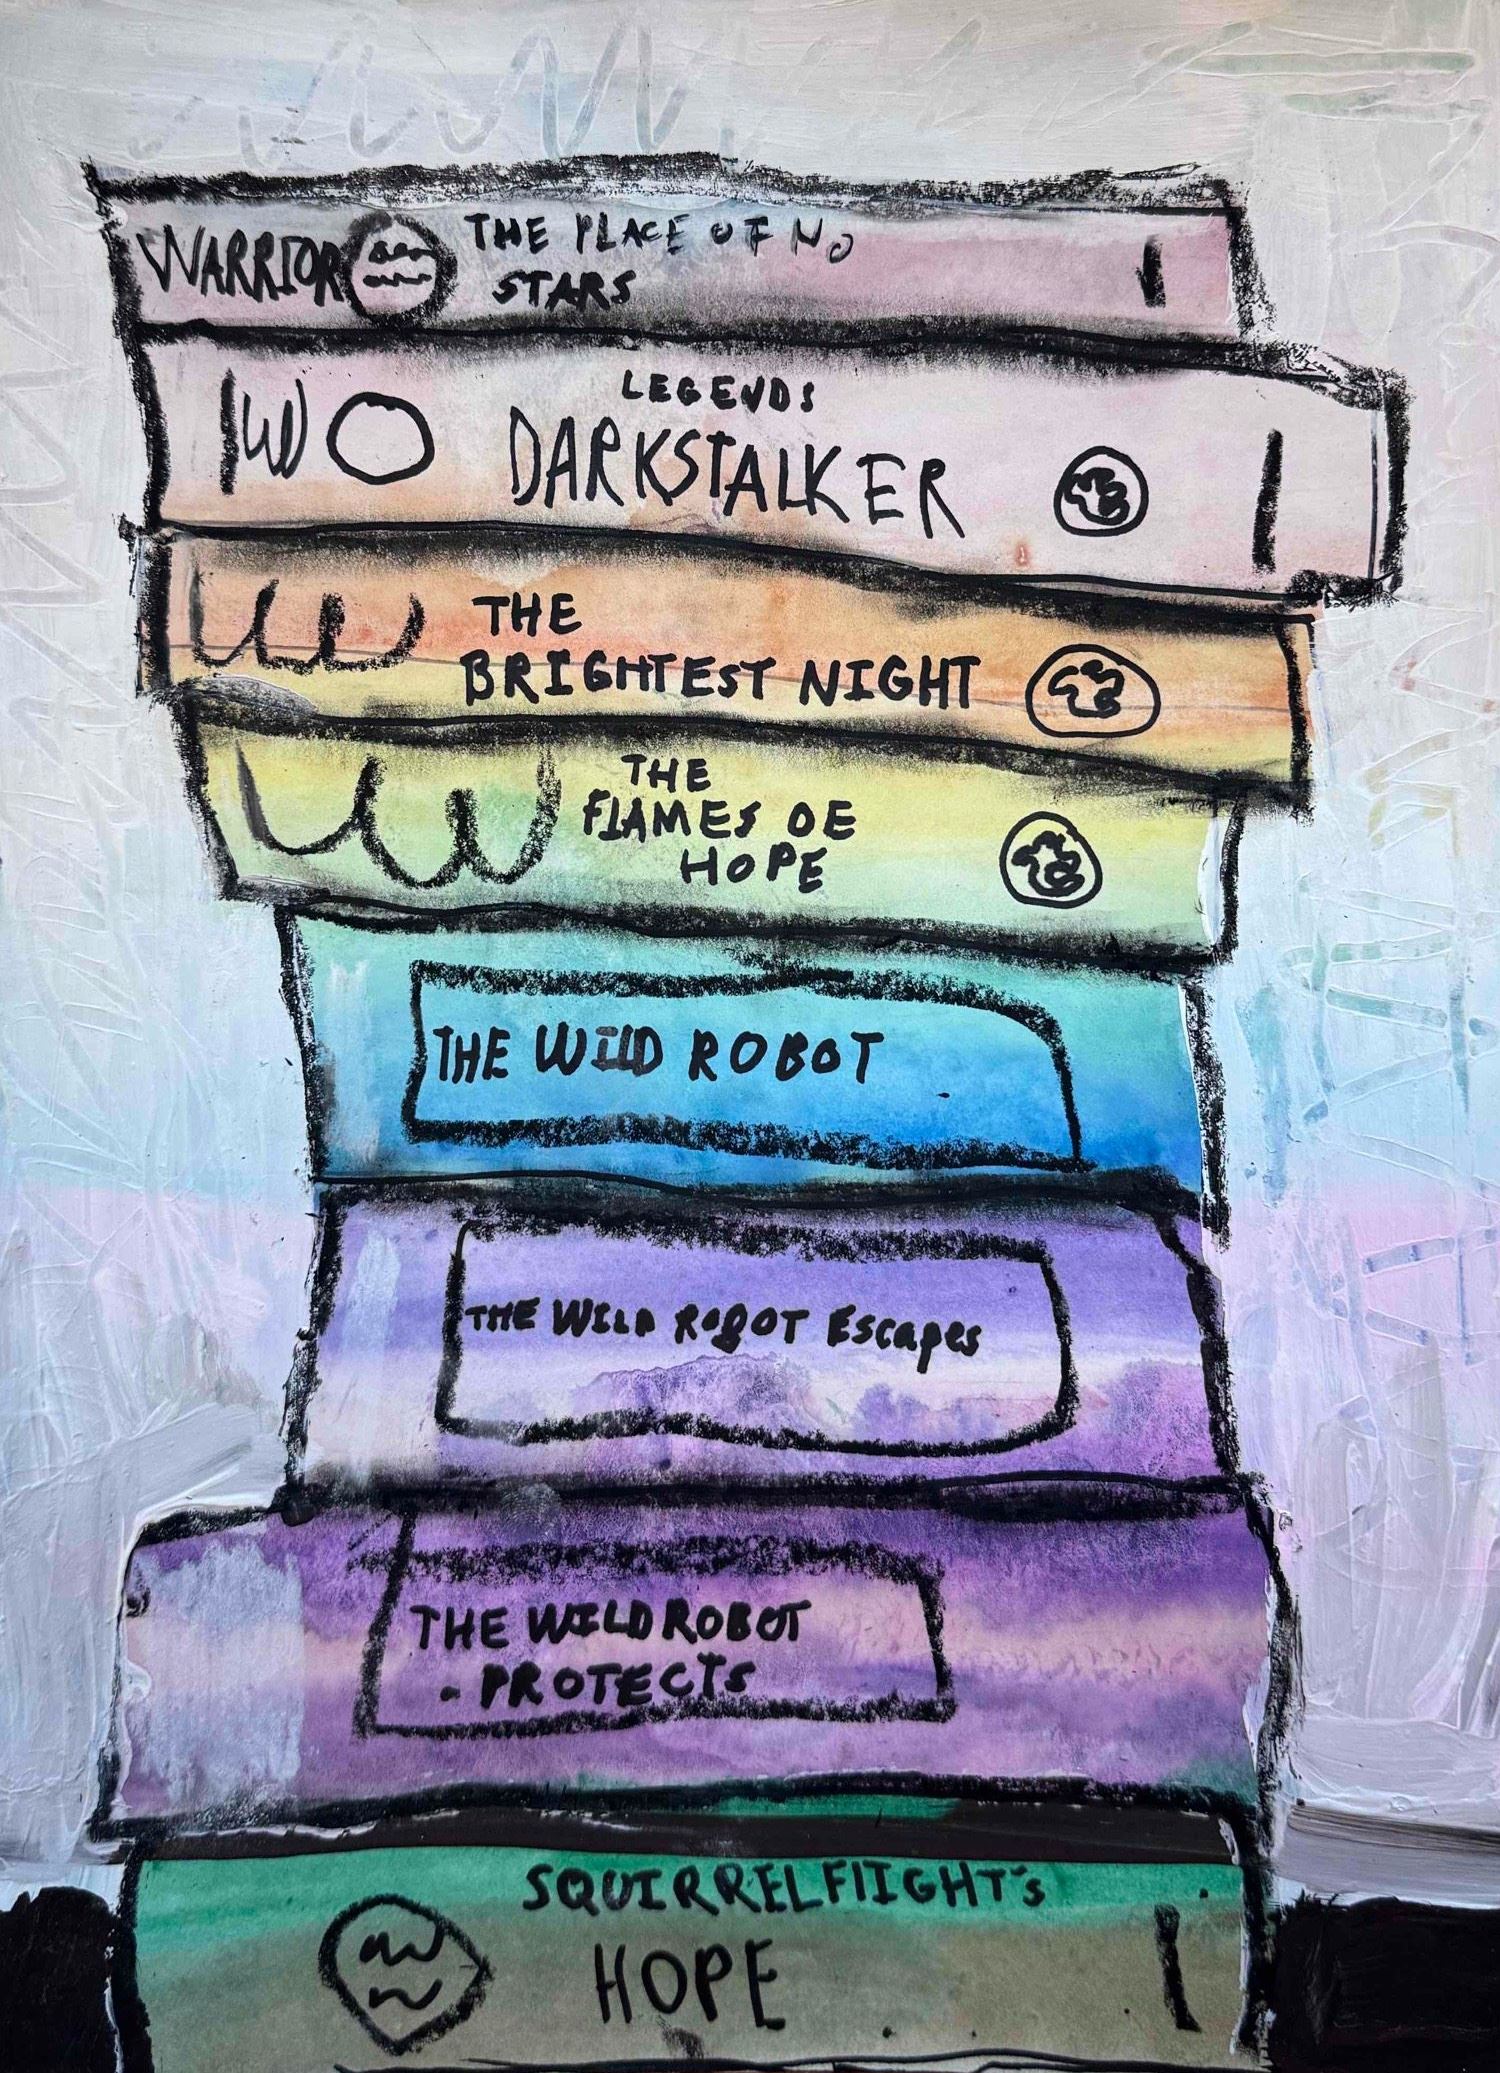 WARRIOR
THE PLACE OF NO
STARS
LEGENDS
DARKSTALKER
THE
BRIGHTEST NIGHT
THE
FLAMES OE
HOPE
THE WILD ROBOT
THE WILD ROBOT Escapes
THE WILD ROBOT
PROTECTS
SQUIRRELFlIGHT's
HOPE